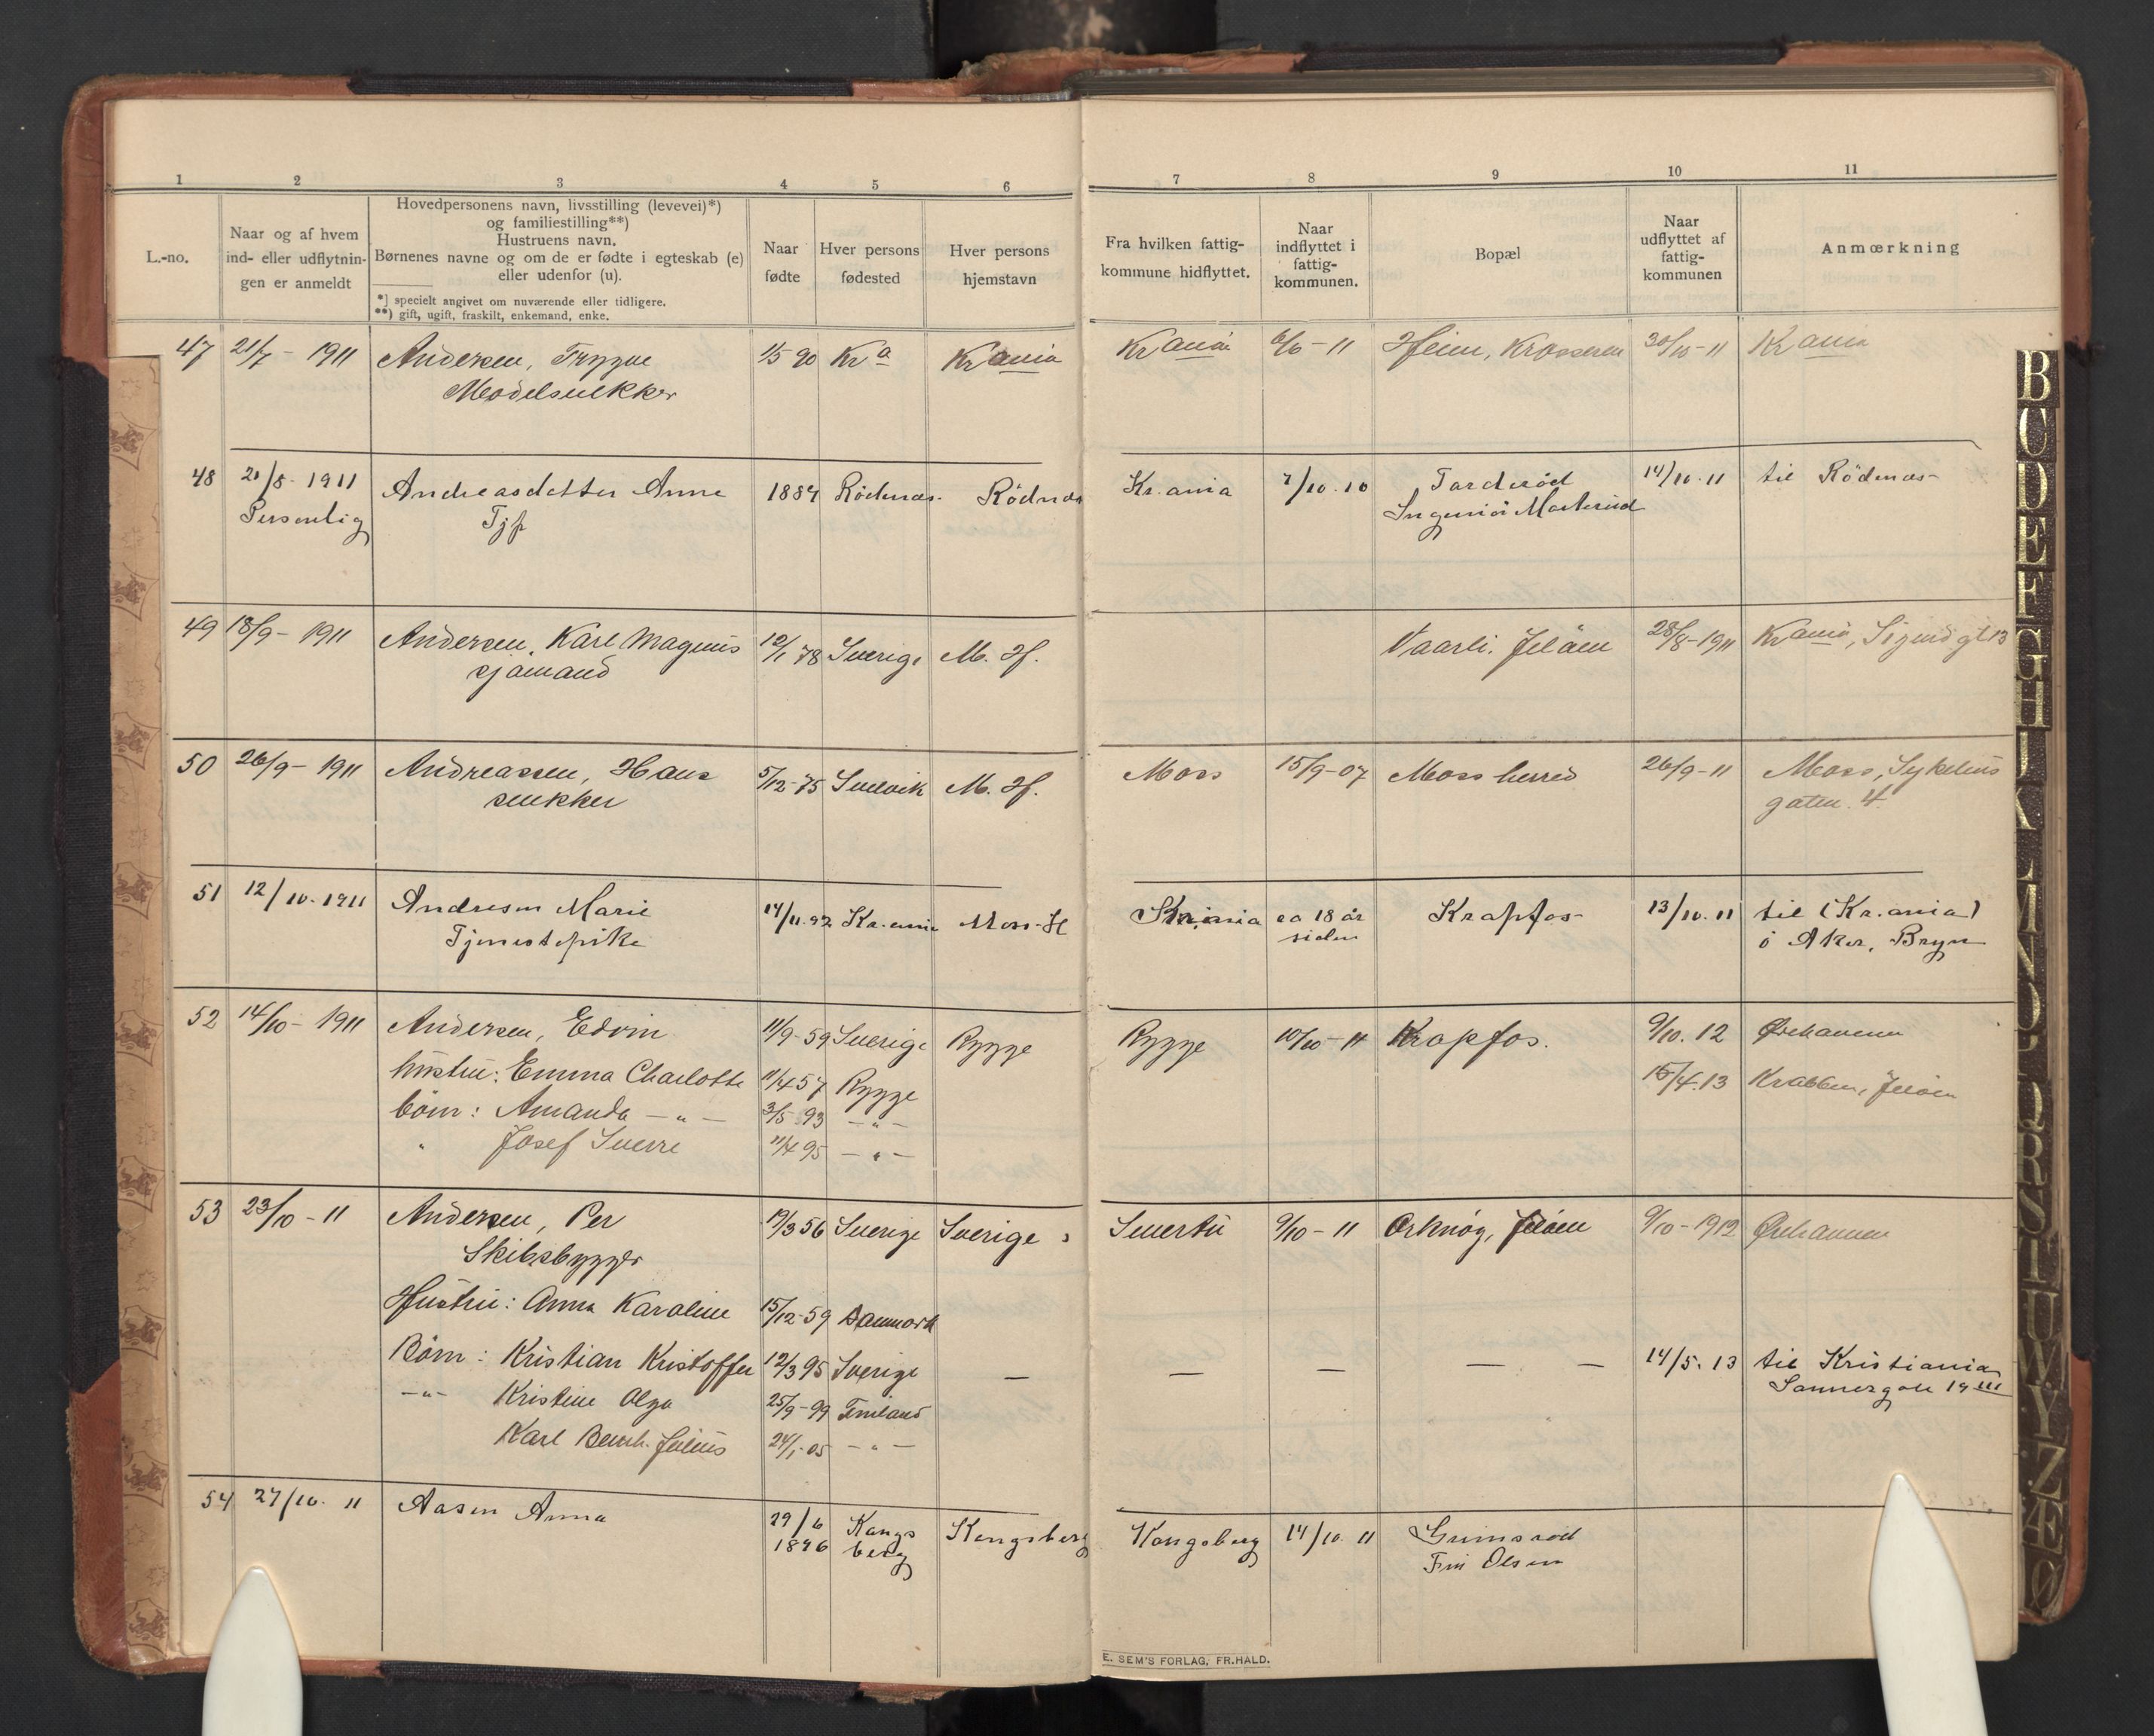 1 2 3 4 5 6 7 8 9 10 11
L.-no.
Naar og af hvem
ind- eller udflytnin-
gen er anmeldt
Hovedpersonens navn, livsstilling (levevei)*)
og familiestilling**)
Hustruens navn.
Børnenes navne og om de er fødte i egteskab (e)
eller udenfor (u).
*] specielt angivet om nuværende eller tidligere.
**) gift, ugift, fraskilt, enkemand, enke.
Naar
fødte
Hver persons
fødested
Hver persons
hjemstavn
Fra hvilken fattig-
kommune hidflyttet.
Naar
indflyttet i
fattig-
kommunen.
Bopæl
Naar
udflyttet af
fattig-
kommunen
Anmærkning
47 21/7 - 1911 Andersen, Trygve 1/5 90 Kra Krania Krania 6/6 - 11 Heim, Krosseren 30/10 - 11 Krania
Modelsnekker
48 21/8 - 1911 Andreasdatter Anna 1884 Rödenæs Rödnæs Kr.ania 7/10.10 Tarderöd 14/10.11 til Rödenæs
Personlig Tjp Ingeniör
49 18/9 - 1911 Andersen, Karl Magnus 12/1 78 Sverige M. H. Vaarli, Jeløen 28/8 - 1911 Krania, Sigurdgt 13
sjømand
50 26/9 - 1911 Andreassen, Hans 5/12 - 75 Svelvik M. H. Moss 15/9 - 07 Moss herred 26/9 - 11 Moss, Sykehus
snekker gaten 4
51 12/10. 1911 Andresen Marie 14/11.92 Kr.ania Moss H Kr.ania ca 18 år Krapfos 13/10.11 til (Kr.ania)
Tjenestepike siden ö Aker, Bryn
52 14/10 - 1911 Andersen, Edvin 11/9 - 59 Sverige Rygge Rygge 10/10 - 11 Krapfos. 9/10. 12 Ørehavnen
hustru: Emma Charlotte 11/4 57 Rygge 15/4.13 Krabben, Jeløen
börn: Amanda — " — 3/5 93 — " —
" Josef Sverre 11/4 95 — " —
53 23/10 - 11 Andersen, Per 19/3 56 Sverige Sverige 9/10 - 11 Orknøy, Jeløen 9/10 - 1912 Ørehavnen
Skibsbygger
Hustru: Anna Karoline 15/12 - 59 Danmark
Børn: Kristian Kristoffer 12/3 95 Sverige — — — — — 14/5. 13 til Kristiania
—"— Kristine Olga 25/9 - 99 Finland Sannergate 19 III
Karl Bernh. Julius 24/1 - 05 — " —
54 27/10. 11 Aasen Anna 29/6 Kongs Kongsberg Kongsberg 14/10. 11 Grimsröd
1896 berg Fru Olsen
E. SEM'S FORLAG, FR.HALD.
B
C
D
E
F
G
H
J
K
L
M
N
O
P
Q
R
S
T
U
W
Y
Z
Æ
Ø